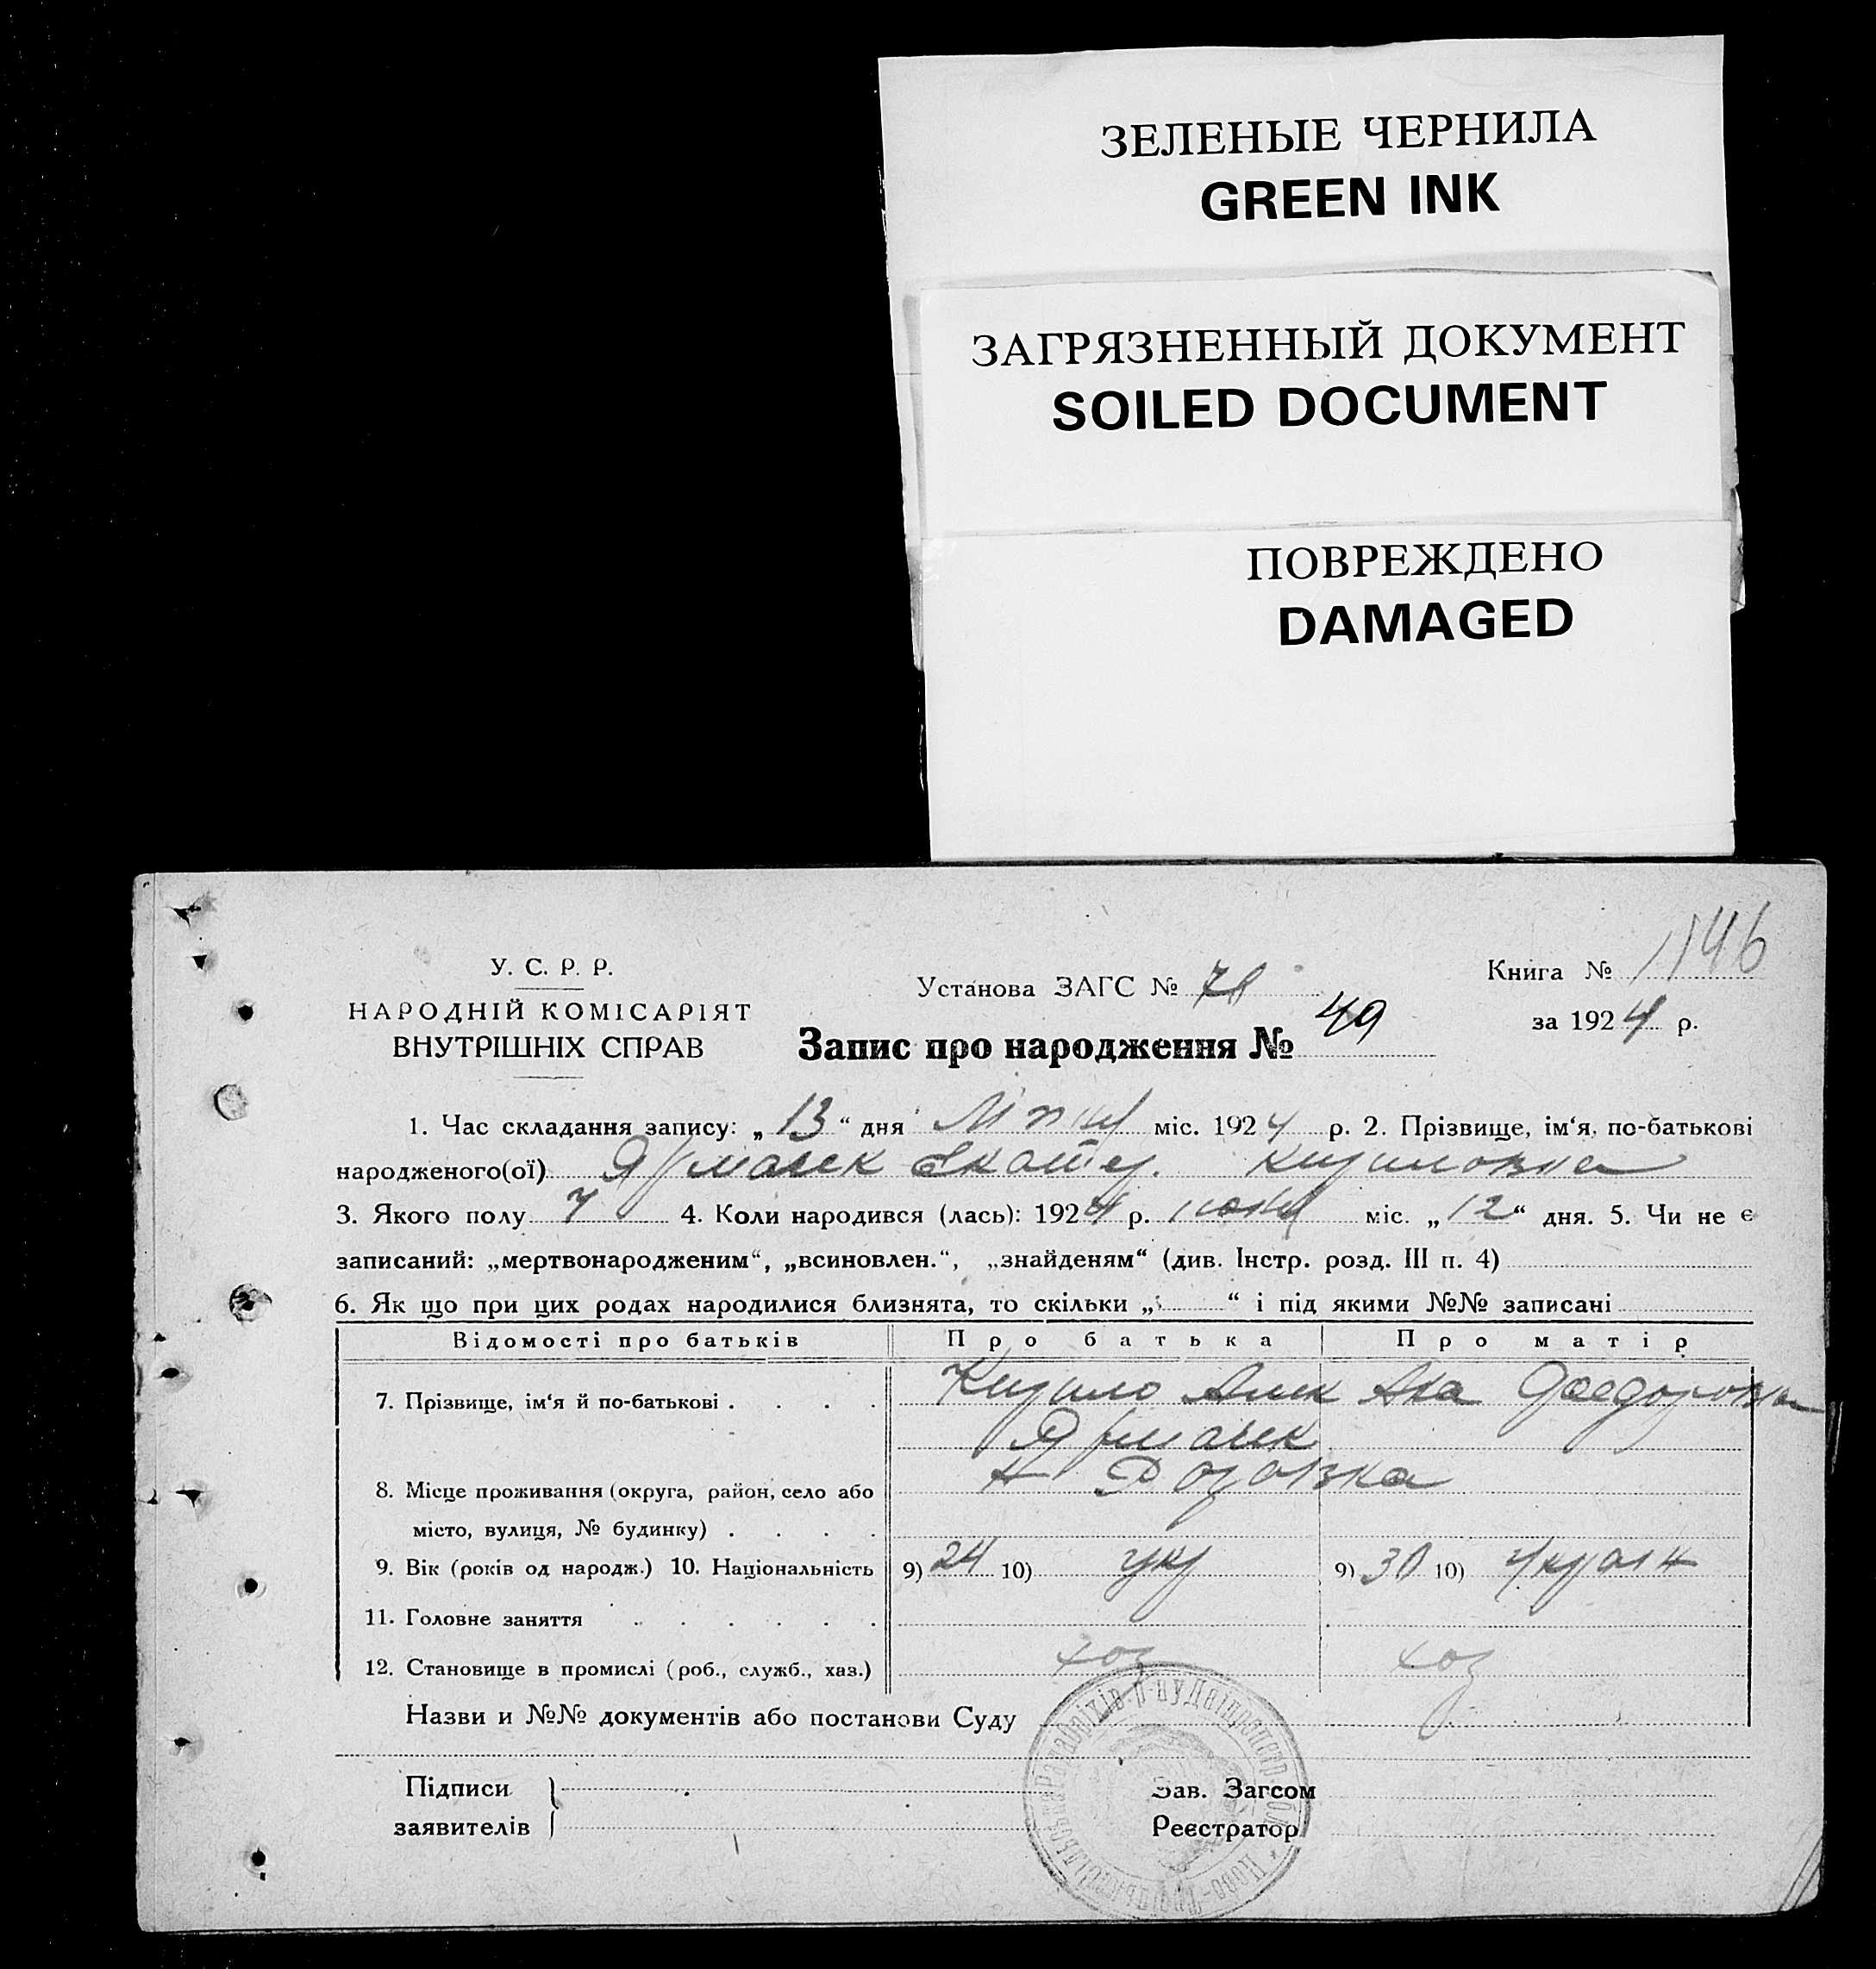 ЗЕЛЕНЫЕ ЧЕРНИЛА
GREEN INK
ЗАГРЯЗНЕННЫЙ ДОКУМЕНТ
SOILED DOCUMENT
ПОВРЕЖДЕНО
DAMAGED
У. С. Р. Р.
НАРОДНІЙ КОМІСАРІЯТ
ВНУТРІШНІХ СПРАВ
Установа ЗАГС №
Запис про народження № 49
Книга № 1146
за 1924 р.
1. Час складання запису: „13“ дня міс. 1924 р. 2. Прізвище, ім‘я, по-батькові
народженого(ої) Ярмак Екатер. Кириловна
3. Якого полу 4. Коли народився (лась): 1924 р. міс. „12“ дня. 5. Чи не є
записаний: „мертвонародженим“, „всиновлен.“, „знайденям“ (див. Інстр. розд. III п. 4)
6. Як що при цих родах народилися близнята, то скільки „ “ і під якими №№ записані
Відомості про батьків Про батька Про матір
7. Прізвище, ім‘я й по-батькові . . . . Кирило Федоровна
8. Місце проживання (округа, район, село або
місто, вулиця, № будинку) . . . .
9. Вік (років од народж.) 10. Національність 9) 24 10) укр 9) 30 10)
11. Головне заняття . . . . . .
12. Становище в промислі (роб., служб., хаз.) хоз хоз
Назви и №№ документів або постанови Суду
Підписи
заявителів
Зав. Загсом
Реєстратор